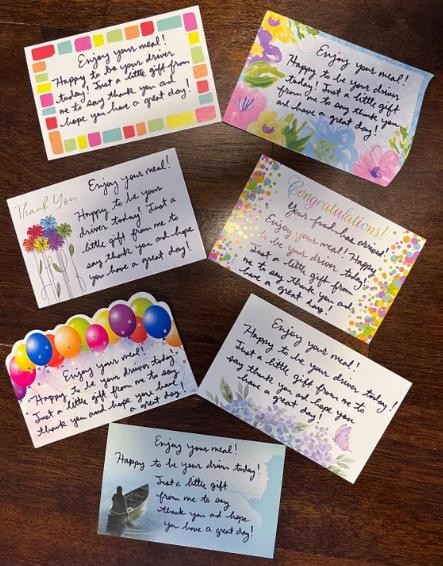 Enjoy your meal!
Happy to be your driver
today! Just a little gift from
me to say thank you and
hope you have a great day!
Enjoy your meal!
Happy to be your driver
today! Just a little gift
from me to say thank you
and have a great day!
Thank You
Enjoy your meal!
Happy to be your
driver today! Just a
little gift from me to
say thank you and hope
you have a great day!
Congratulations!
Your food has arrived!
Enjoy your meal! Happy
to be your driver today!
Just a little gift from
me to say thank you and
have a great day!
Enjoy your meal!
Happy to be your driver today!
Just a little gift from me to say
thank you and hope you have
a great day!
Enjoy your meal!
Happy to be your driver today!
Just a little gift from me to
say thank you and hope you
have a great day!
Enjoy your meal!
Happy to be your driver today!
Just a little gift
from me to say
thank you and hope
you have a great day!